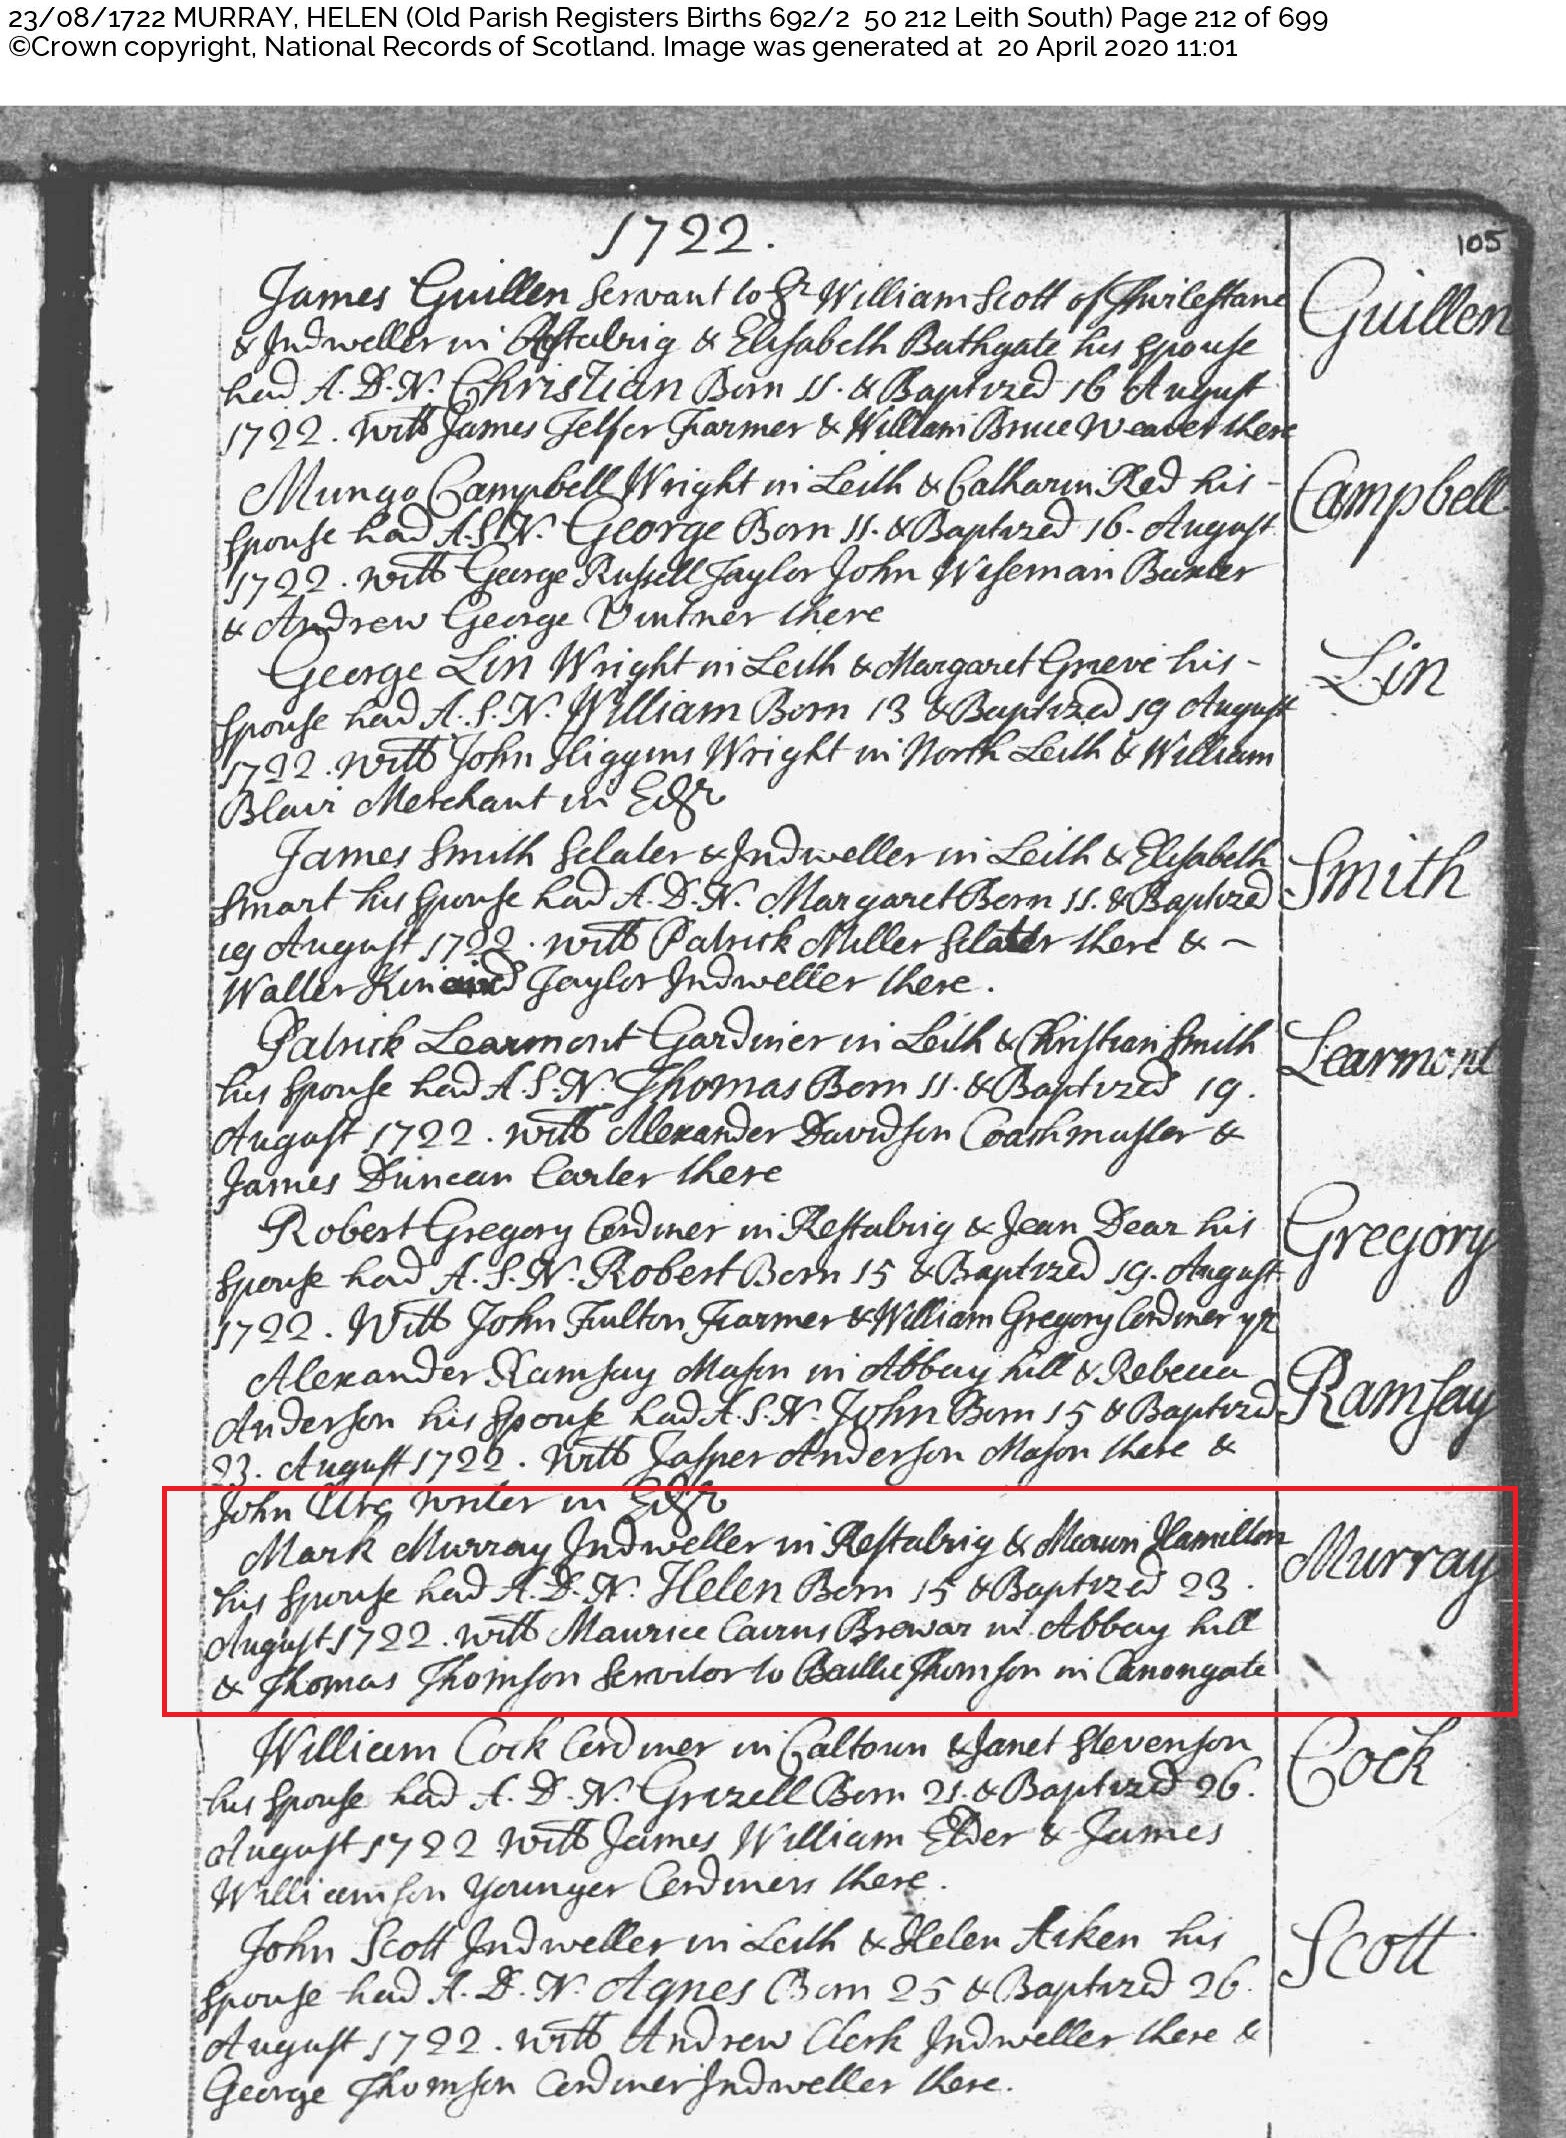 23/08/1722 MURRAY, HELEN (Old Parish Registers Births 692/2 50 212 Leith South) Page 212 of 699
©Crown copyright, National Records of Scotland. Image was generated at 20 April 2020 11:01
1722.
105
James Guillen Servant to Sr William Scott of Thirlestane
Guillen
& Indweller in Restalrig & Elisabeth Bathgate his spouse
had A. D. N. Christian Born 11. & Baptized 16 August
1722. Witt James Telfer Farmer & William Bruce Weaver there
Mungo Campbell Wright in Leith & Catharin Red his -
Campbell
spouse had A. S. N. George Born 11. & Baptized 16. August
1722. Witt George Russell Taylor John Weseman Baxter
& Andrew George Vintner there
George Lin Wright in Leith & Margaret Grieve his -
Lin
spouse had A. S. N. William Born 13 & Baptized 19 August
1722. Witt John Higgins Wright in North Leith & William
Blair Merchant in Edr
James Smith Sclater & Indweller in Leith & Elisabeth
Smith
Smart his Spouse had A. D. N. Margaret Born 11. & Baptized
19 August 1722. Witt Patrick Miller Sclater there & -
Walter Kincaid Taylor Indweller there.
Patrick Learmont Gardiner in Leith & Christian Smith
Learmont
his Spouse had A. S. N. Thomas Born 11. & Baptized 19.
August 1722. Witt Alexander Davidson Coachmaster &
James Duncan Carter there
Robert Gregory Cordiner in Restalrig & Jean Dear his
Gregory
Spouse had A. S. N. Robert Born 15 & Baptized 19. August
1722. Witt John Fulton Farmer & William Gregory Cordiner yr
Alexander Ramsay Mason in Abbay hill & Rebecca
Ramsay
Anderson his Spouse had A. S. N. John Born 15 & Baptized
23. August 1722. Witt Jasper Anderson Mason there &
John Writer in Edr
Mark Murray Indweller in Restalrig & Marion Hamilton
Murray
his Spouse had A. D. N. Helen Born 15 & Baptized 23.
August 1722. Witt Maurice Cairns Brewar in Abbay hill
& Thomas Thomson Servitor to Baillie Thomson in Canongate
William Cock Cordiner in Caltoun & Janet Stevenson
Cock
his Spouse had A. D. N. Grizell Born 21. & Baptized 26.
August 1722 Witt James William Elder & James
Williamson Younger Cordiners there.
John Scott Indweller in Leith & Helen Aiken his
Scott
Spouse had A. D. N. Agnes Born 25 & Baptized 26.
August 1722. Witt Andrew Clerk Indweller there &
George Thomson Cordiner Indweller there.